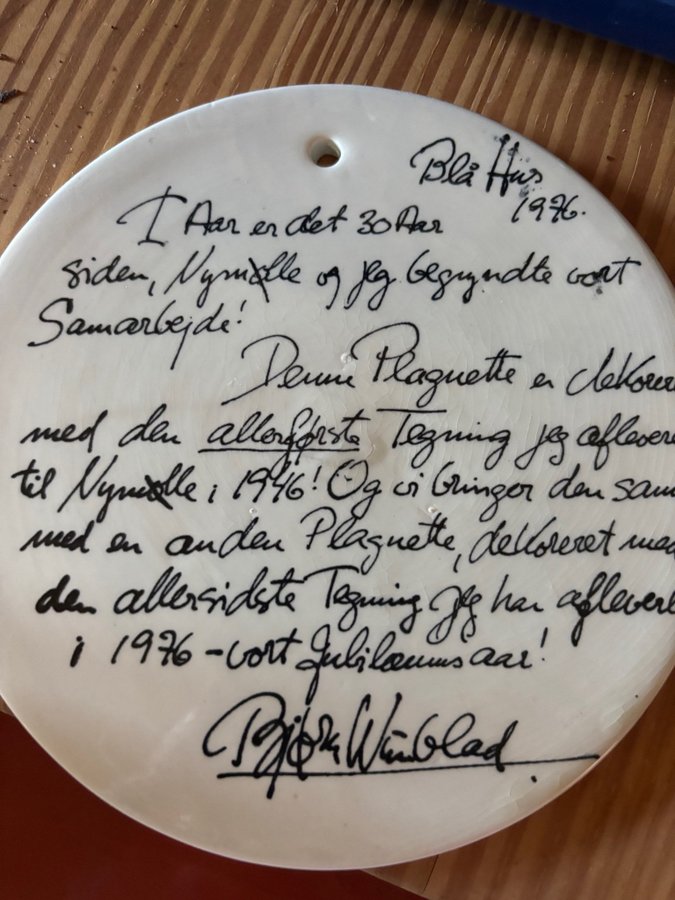 Blå Hus
1976.
I Aar er det 30 Aar
siden, Nymølle og jeg begyndte vort
Samarbejde!
Denne Plaquette er dekorer
med den allerførste Tegning jeg aflevere
til Nymølle i 1946! Og vi bringer den sam
med en anden Plaquette, dekoreret med
den allersidste Tegning jeg har afleveret
i 1976 - vort Jubilæumsaar!
Bjørn Wiinblad